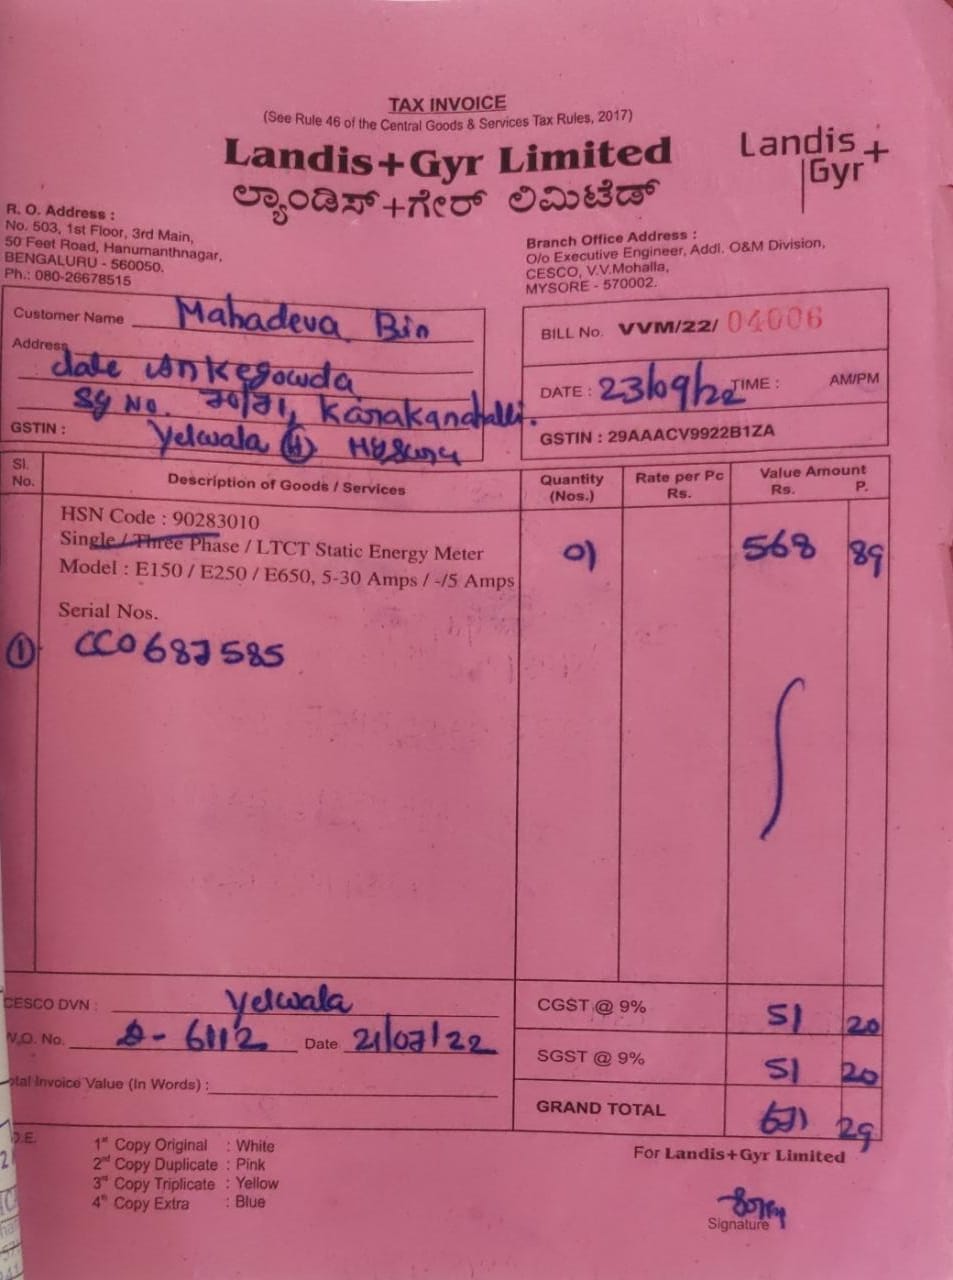 TAX INVOICE
(See Rule 46 of the Central Goods & Services Tax Rules, 2017)
Landis+Gyr Limited
ಲ್ಯಾಂಡಿಸ್+ಗೇರ್ ಲಿಮಿಟೆಡ್
Landis
Gyr+
R. O. Address :
No. 503, 1st Floor, 3rd Main,
50 Feet Road, Hanumanthnagar,
BENGALURU - 560050.
Ph.: 080-26678515
Branch Office Address :
O/o Executive Engineer, Addl. O&M Division,
CESCO, V.V.Mohalla,
MYSORE - 570002.
Customer Name Mahadeva Bin
Address Late Ankegowda
Sy No. 70/71, Karakanahalli.
GSTIN : Yelwala (H) Mysuru
BILL No. VVM/22/ 04006
DATE : 23/09/22 TIME : AM/PM
GSTIN : 29AAACV9922B1ZA
Sl. No. Description of Goods / Services Quantity (Nos.) Rate per Pc Rs. Value Amount Rs. P.
HSN Code : 90283010
Single / Three Phase / LTCT Static Energy Meter 01 568 89
Model : E150 / E250 / E650, 5-30 Amps / -/5 Amps
Serial Nos.
1 CC0687585
CESCO DVN : Yelwala
CGST @ 9% 51 20
W.O. No. 6112 Date 21/07/22
SGST @ 9% 51 20
Total Invoice Value (In Words) :
GRAND TOTAL 671 29
O.E.
1st Copy Original : White
2nd Copy Duplicate : Pink
3rd Copy Triplicate : Yellow
4th Copy Extra : Blue
For Landis+Gyr Limited
Signature